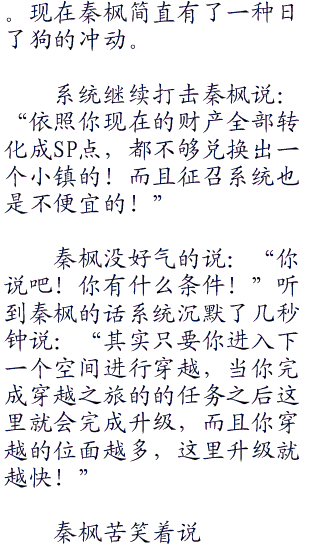 。现在秦枫简直有了一种日
了狗的冲动。
系统继续打击秦枫说：
“依照你现在的财产全部转
化成SP点，都不够兑换出一
个小镇的！而且征召系统也
是不便宜的！”
秦枫没好气的说：“你
说吧！你有什么条件！”听
到秦枫的话系统沉默了几秒
钟说：“其实只要你进入下
一个空间进行穿越，当你完
成穿越之旅的的任务之后这
里就会完成升级，而且你穿
越的位面越多，这里升级就
越快！”
秦枫苦笑着说